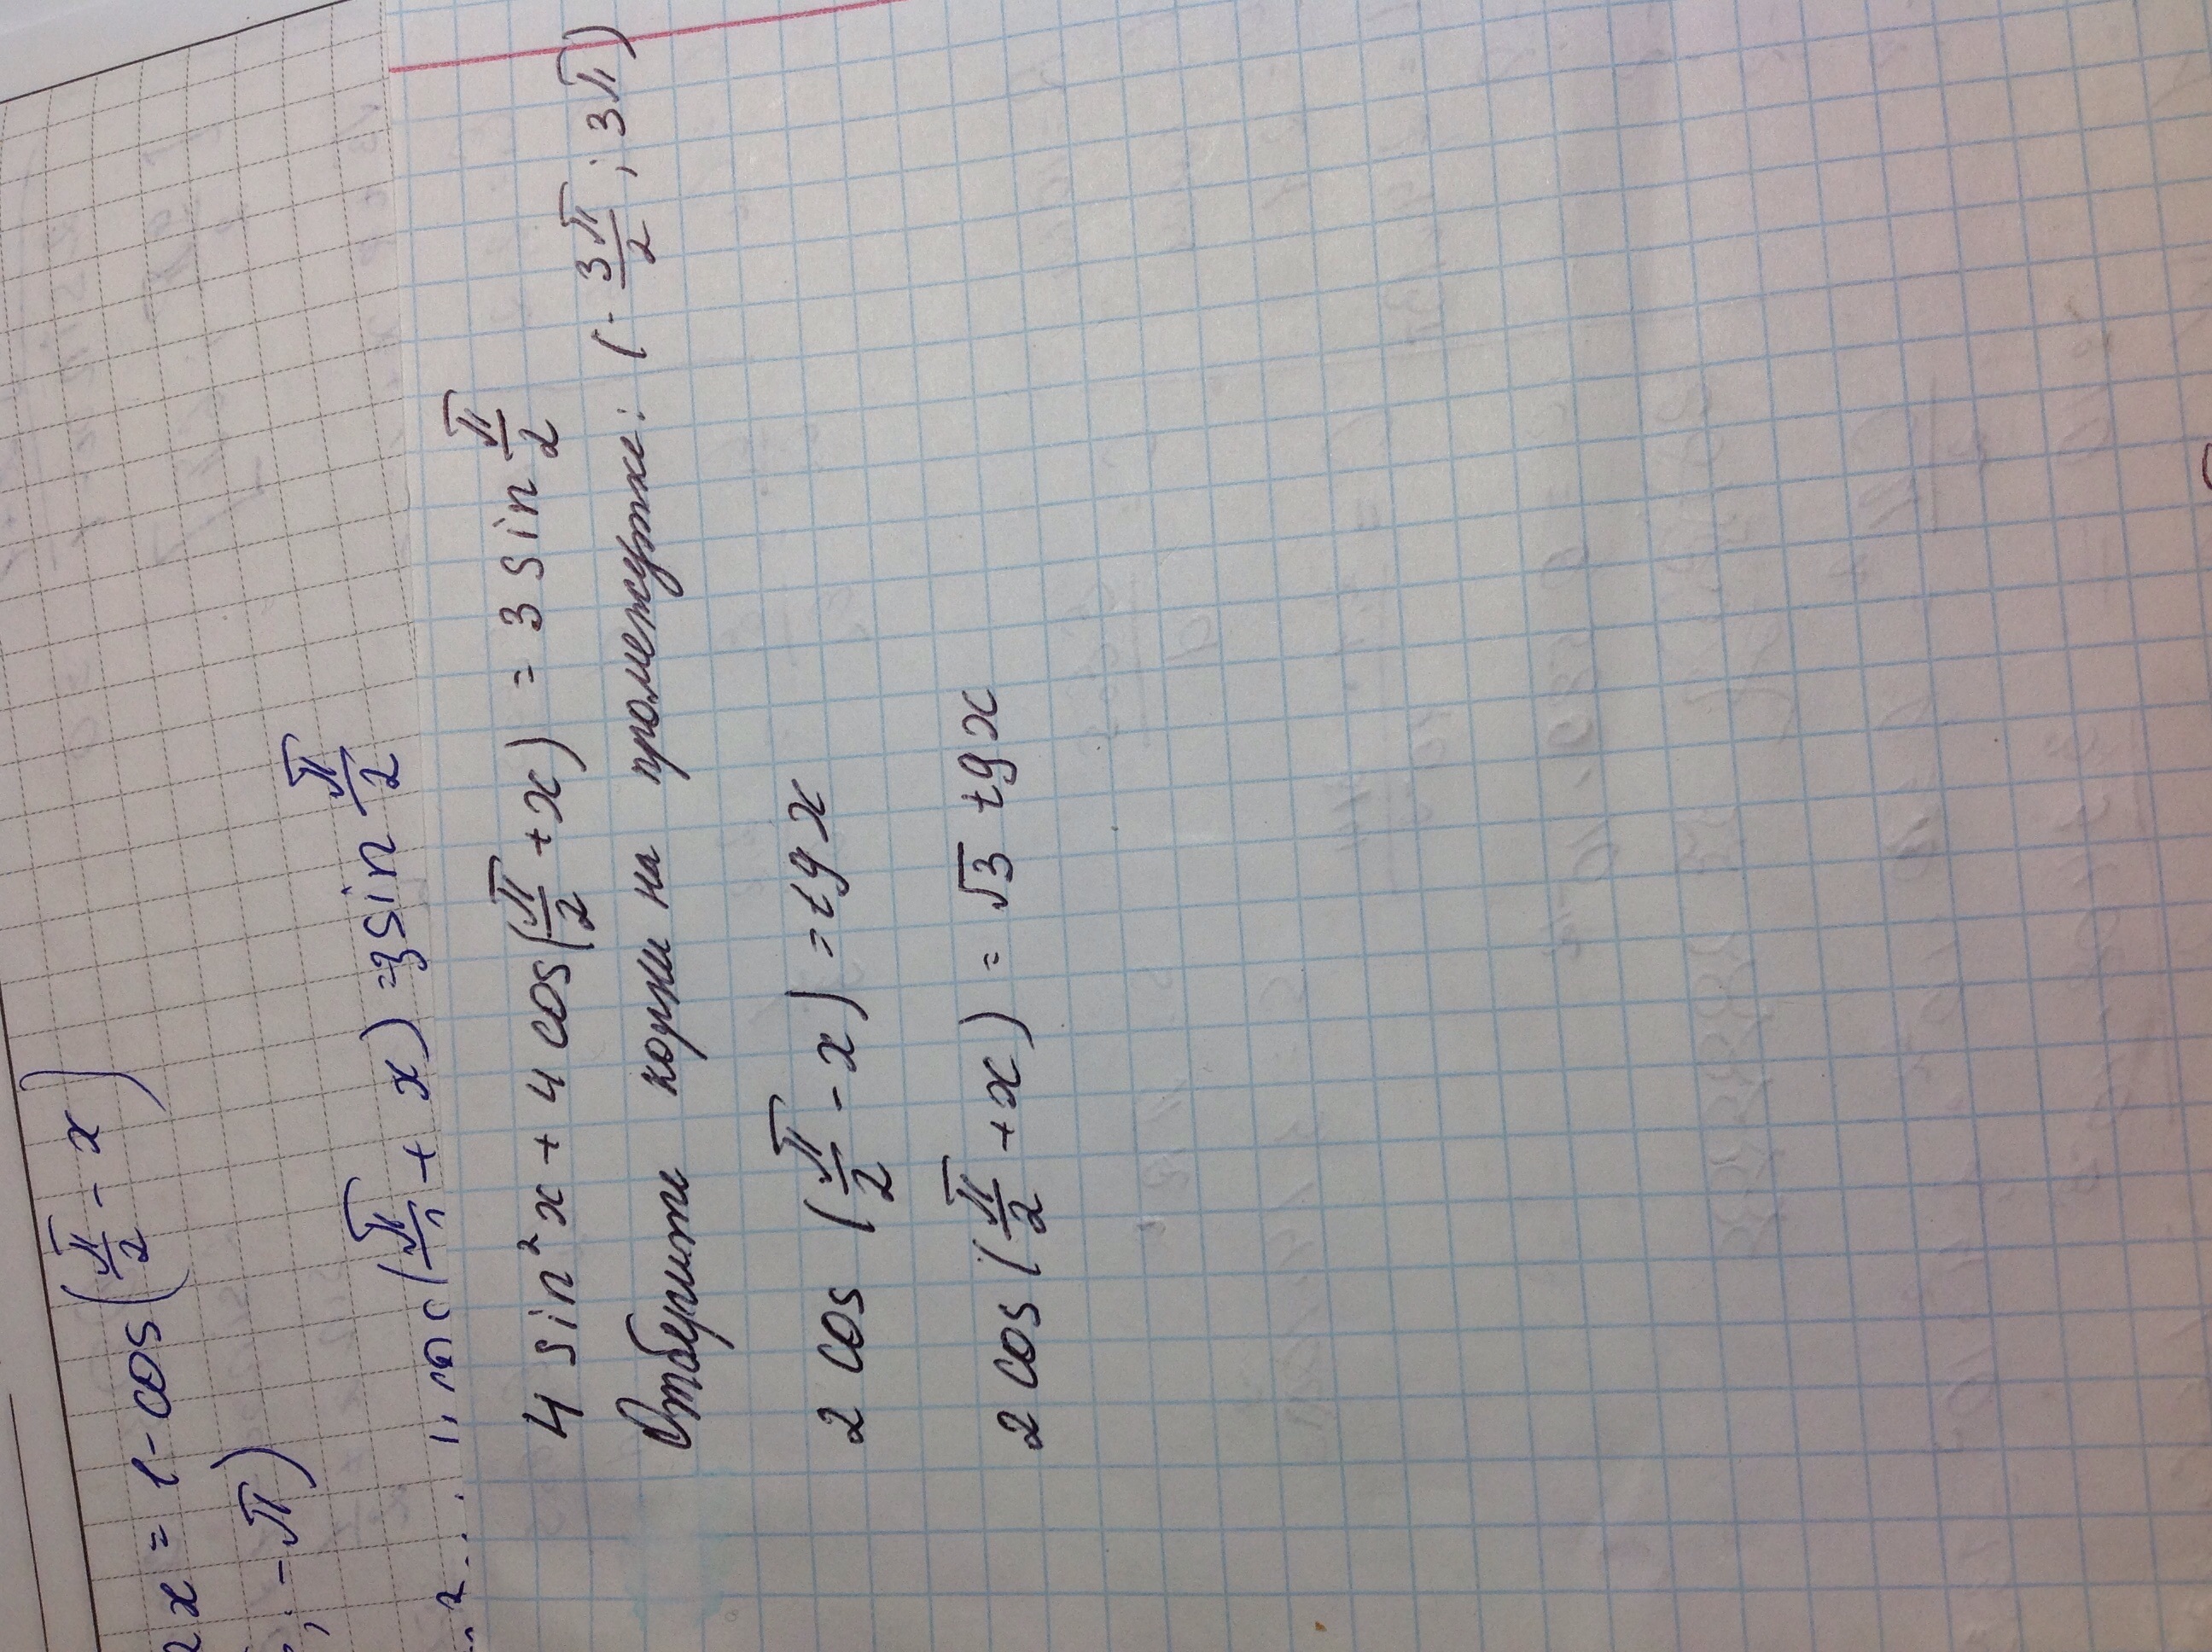 2x = 1 - cos(π/2 - x)
; -π)
(π/2 + x) = 3 sin π/2
4 sin²x + 4 cos(π/2 + x) = 3 sin π/2
Отберите корни на промежутке: (-3π/2; 3π)
2 cos (π/2 - x) = tg x
2 cos (π/2 + x) = √3 tg x